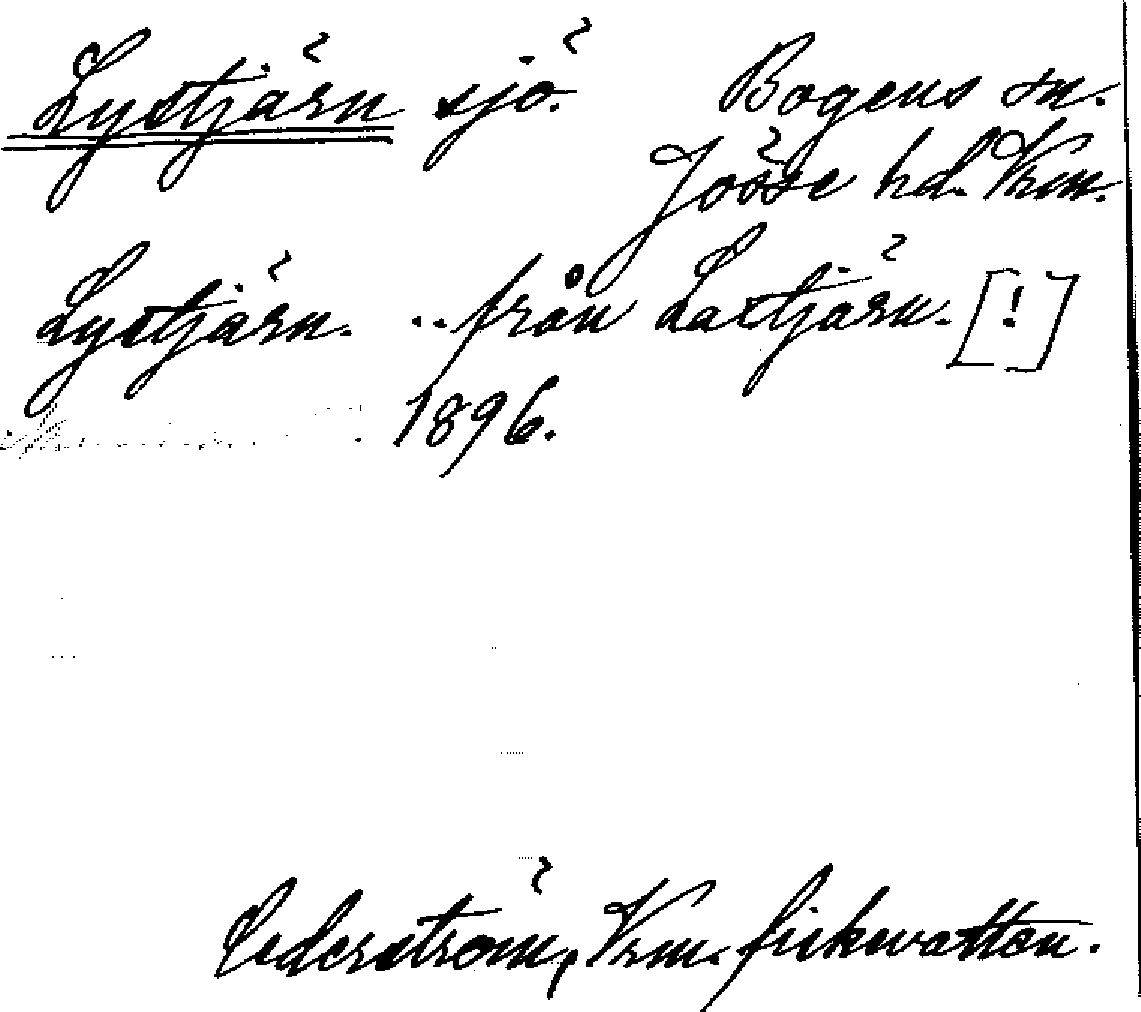 Lystjärn sjö. Bogens sn.
Jösse hd. Vrm.
Lystjärn. .. från Lastjärn. [!]
1896.
Cederström, Vrm. fiskevatten.